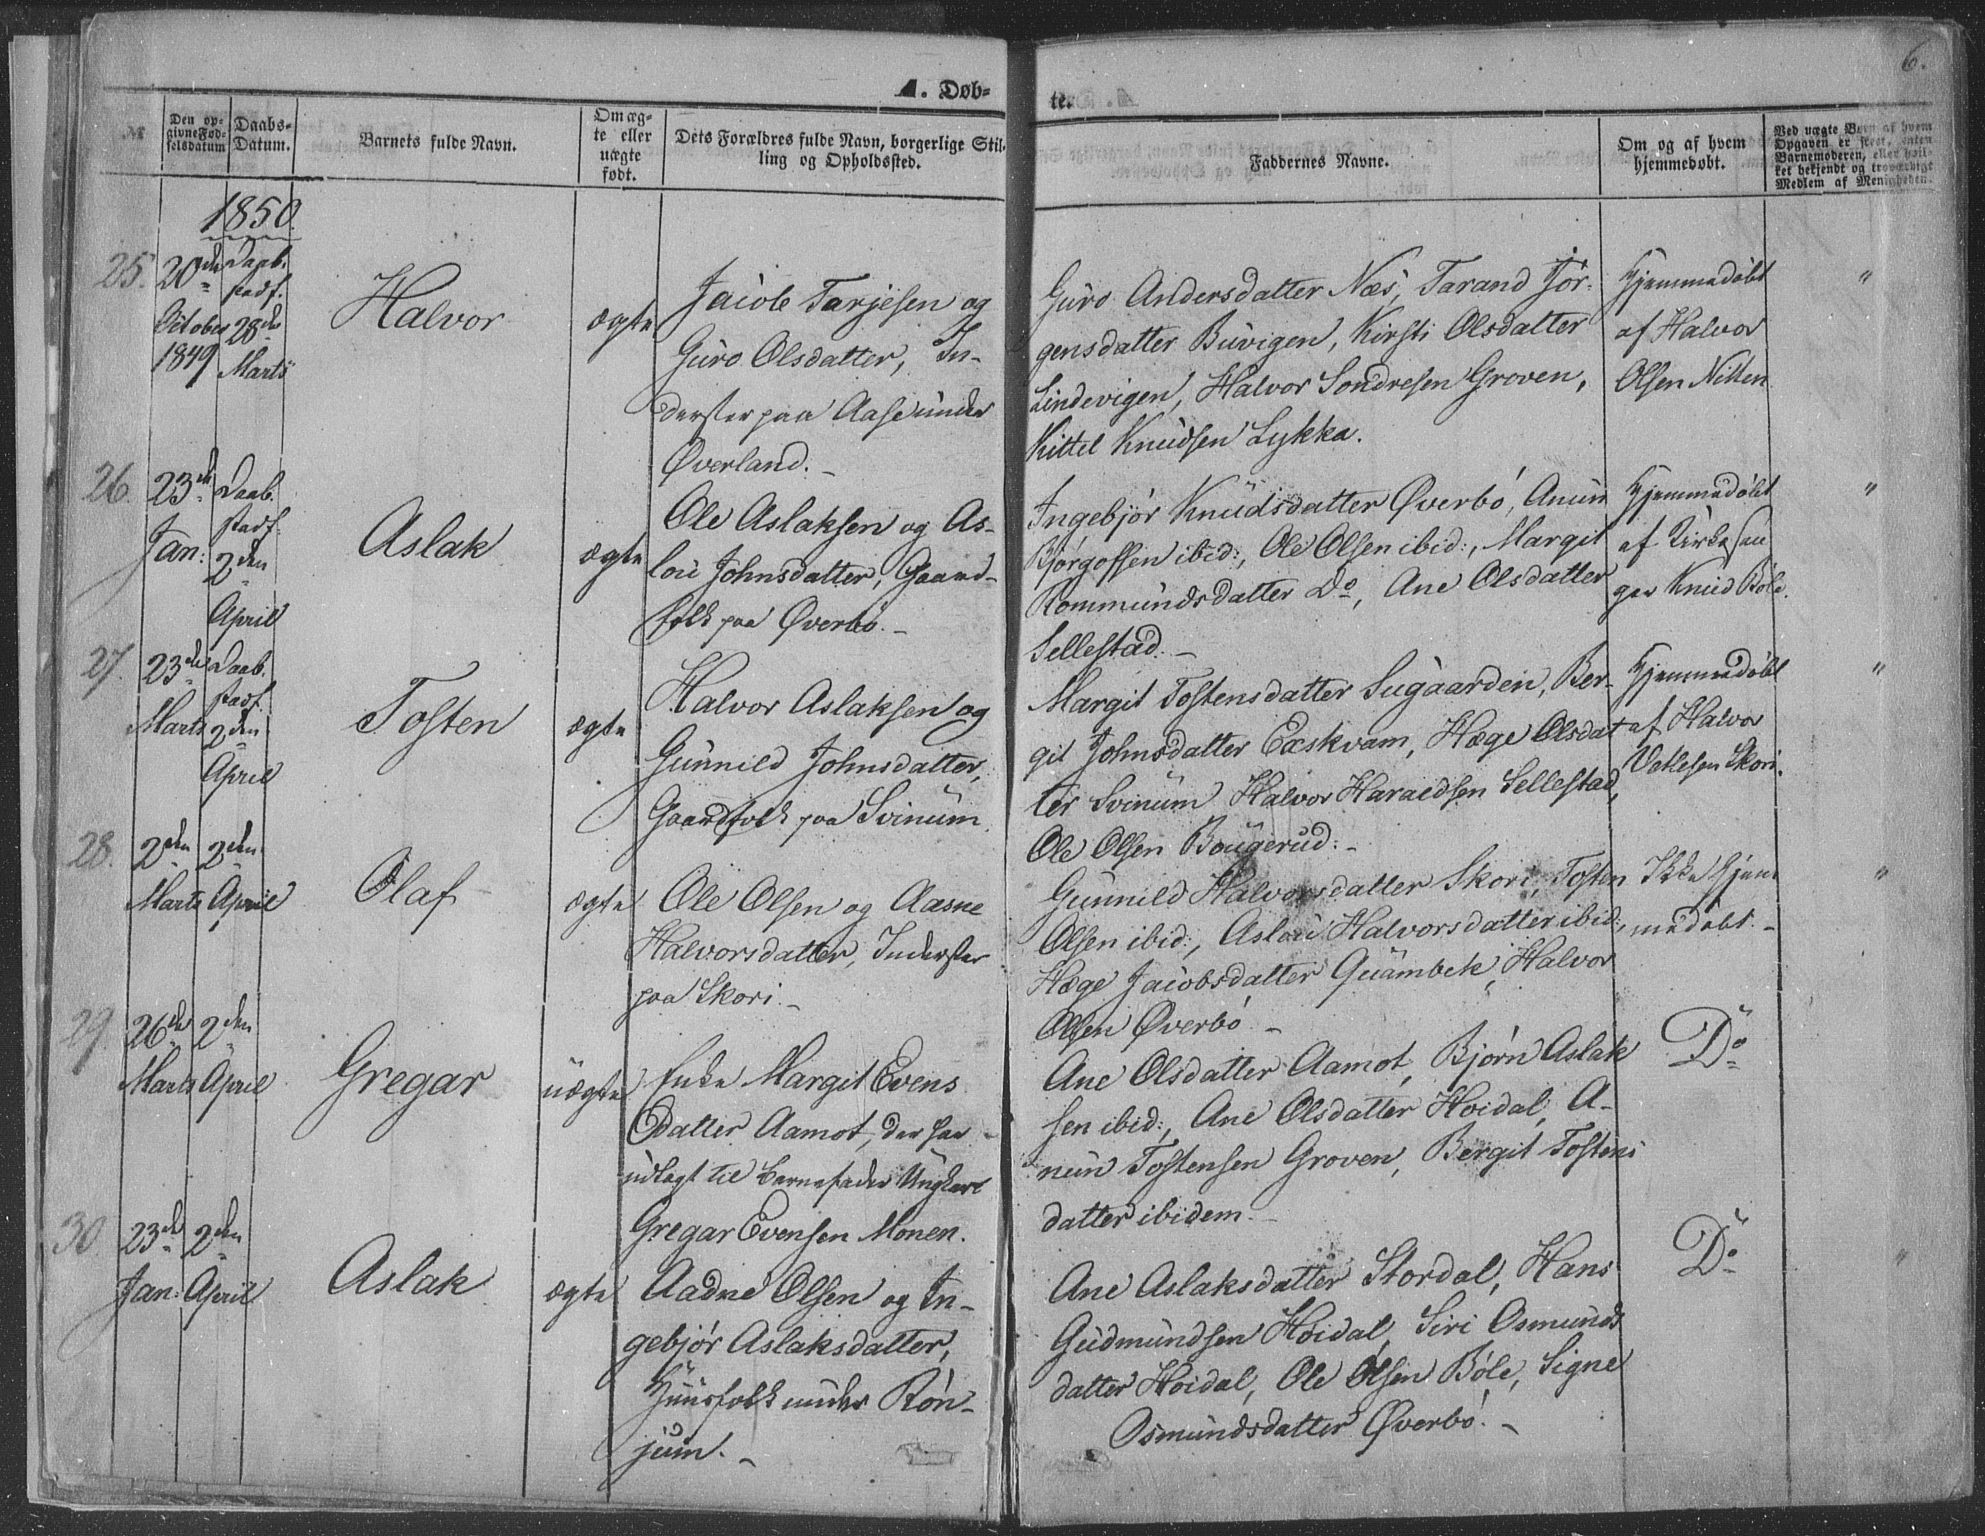 6.
A. Døb-
te.
№
Den op-
givne Fød-
selsdatum
Daabs-
Datum.
Barnets fulde Navn.
Om æg-
te eller
uægte
født.
Dets Forældres fulde Navn, borgerlige Stil-
ling og Opholdssted.
Faddernes Navne.
Om og af hvem
hjemmedøbt.
Ved uægte Børn af hvem
Opgaven er skeet, enten
Barnemoderen, eller hvil-
ket bekjendt og troværdigt
Medlem af Menigheden.
1850.
25.
20de
October
1849
Daab.
stadf.
28de
Marts
Halvor
ægte
Jacob Tarjesen og
Guro Olsdatter, In-
derster paa Aase under
Øverland.-
Guro Andersdatter Næs, Tarand Jør-
gensdatter Buvigen, Kirsti Olsdatter
Lindevigen, Halvor Sondresen Groven,
Kittel Knudsen Lykka.
Hjemmedøbt
af Halvor
Olsen Nitten
"
26.
23de
Jan:
Daab.
stadf.
2den
April
Aslak
ægte
Ole Aslaksen og As-
lou Johnsdatter, Gaard-
folk paa Øverbø.-
Ingebjør Knudsdatter Øverbø, Anun
Bjørgofsen ibid:, Ole Olsen ibid:, Margit
Rommundsdatter Do, Ane Olsdatter
Sellestad.-
Hjemmedøbt
af Kirkesan
ger Knud Bøle.
"
27.
23de
Marts
Daab.
stadf.
2den
April
Tosten
ægte
Halvor Aslaksen og
Gunnild Johnsdatter,
Gaardfolk paa Svinum.
Margit Tostensdatter Sugaarden, Ber-
git Johnsdatter Easkvam, Hæge Olsdat-
ter Svinum Halvor Haraldsen Sellestad,
Ole Olsen Bougerud.-
Hjemmedøbt
af Halvor
Vatlesen Skori.
"
28.
2den
Marts
2den
April
Olaf
ægte
Ole Olsen og Aasne
Halvorsdatter, Inderster
paa Skori.-
Gunnild Halvorsdatter Skori, Tosten
Olsen ibid:, Aslou Halvorsdatter ibid:,
Hæge Jacobsdatter Quambek, Halvor
Olsen Øverbø.-
Ikke hjem
medøbt.-
"
29.
26de
Marts
2den
April
Gregar
uægte
Enke Margit Evens
Datter Aamot, der har
udlagt til Barnefader Ungkarl
Gregar Evensen Monen.
Ane Olsdatter Aamot, Bjørn Aslak
sen ibid:, Ane Olsdatter Hoidal, A-
nun Tostensen Groven, Bergit Tostens
datter ibidem.-
Do
30
23de
Jan:
2den
April
Aslak
ægte
Aadne Olsen og In-
gebjør Aslaksdatter,
Huusfolk under Røn-
jum.-
Ane Aslaksdatter Stordal, Hans
Gudmundsen Hoidal, Siri Osmunds
datter Hoidal, Ole Olsen Bøle, Signe
Osmundsdatter Øverbø.-
Do
"